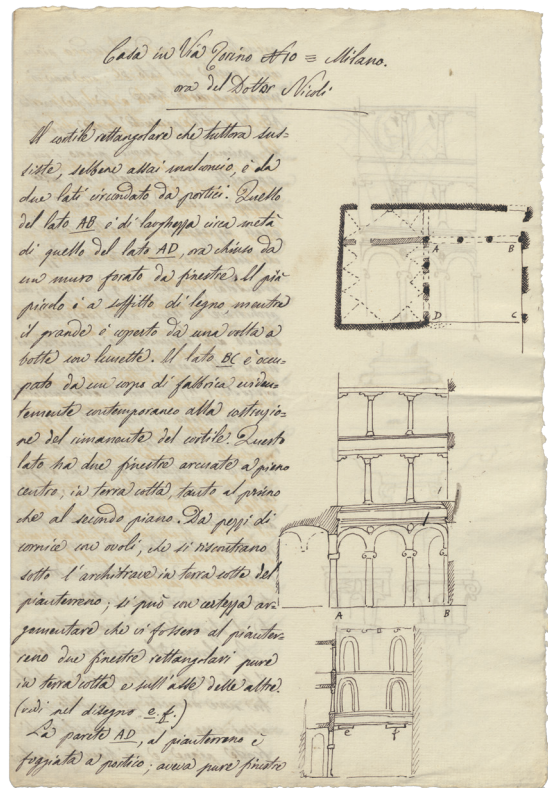 Casa in Via Torino N 10 = Milano.
ora del Dottor Nicoli
Il cortile rettangolare che tuttora sus-
siste, sebbene assai malconcio, è da
due lati circondato da portici. Quello
del lato AB è di larghezza circa metà
di quello del lato AD, ora chiuso da
un muro forato da finestre. Il più
piccolo è a soffitto di legno, mentre
il grande è coperto da una volta a
botte con lunette. Il lato BC è occu-
pato da un corpo di fabbrica eviden-
temente contemporaneo alla costruzio-
ne del rimanente del cortile. Questo
lato ha due finestre arcuate a pieno
centro, in terra cotta, tanto al primo
che al secondo piano. Da pezzi di
cornice con ovoli, che si riscontrano
sotto l'architrave in terra cotta del
pianterreno, si può con certezza ar-
gomentare che vi fossero al pianter-
reno due finestre rettangolari pure
in terra cotta e sull'asse delle altre.
(vedi nel disegno e f.)
La parete AD, al pianterreno è
foggiata a portico; aveva pure finestre
A
B
D
C
A
B
e
f